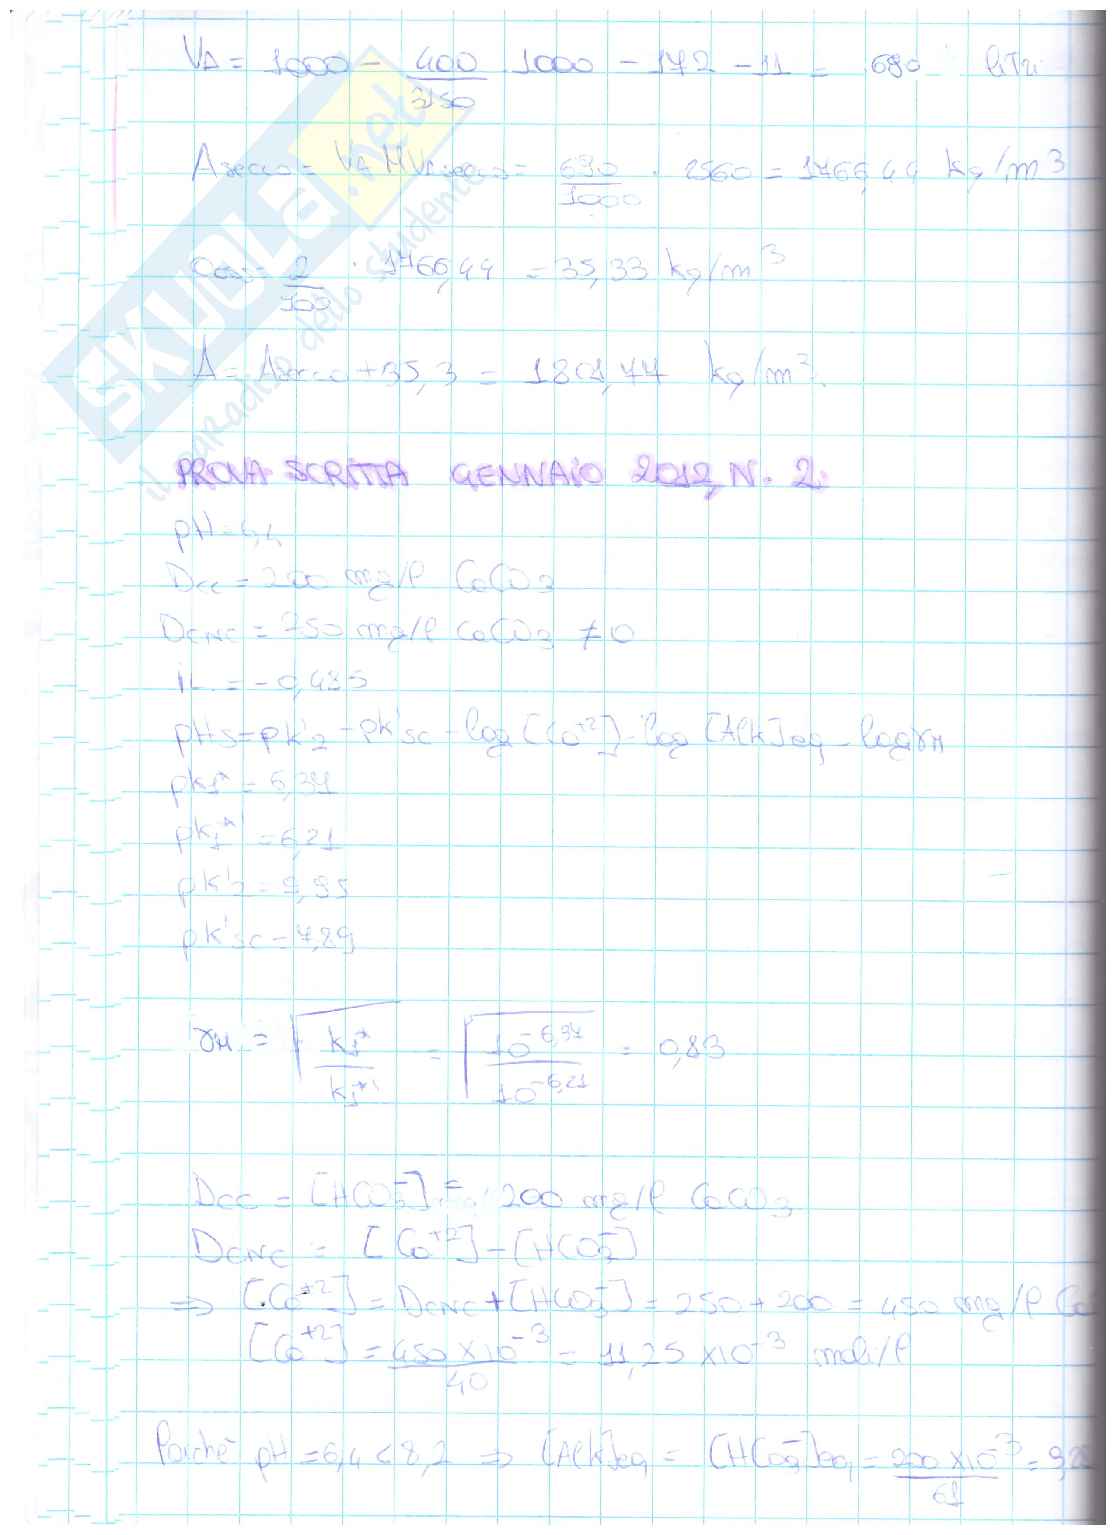 VA = 1000 - 400/3150 1000 - 172 - 11 = 690 litri
Asecco = VA MVAsecco = 690/1000 · 2560 = 1766,44 kg/m³
= 2/100 · 1766,44 = 35,33 kg/m³
A = Asecco + 35,3 = 1801,77 kg/m³.
SKUOLA.net
il paradiso dello studente
PROVA SCRITTA GENNAIO 2012, N. 2:
pH = 6,4
Dcc = 200 mg/l CaCO3
DCNC = 250 mg/l CaCO3 ≠ 0
iL = -0,435
pHs = pk'2 - pk'sc - log [Ca+2] - log [Alk]eq - log γM
pk1* = 6,37
pk1*' = 6,21
pk'2 = 9,95
pk'sc = 7,89
γM = √(k1*/k1*') = √(10^-6,37/10^-6,21) = 0,83
Dcc = [HCO3-] = 200 mg/l CaCO3
DCNC = [Ca+2] - [HCO3-]
⇒ [Ca+2] = DCNC + [HCO3-] = 250 + 200 = 450 mg/l Ca
[Ca+2] = 450 x10^-3/40 = 11,25 x10^-3 moli/l
Poiché pH = 6,4 < 8,2 ⇒ [Alk]eq = [HCO3-]eq = 200 x10^-3/61 =